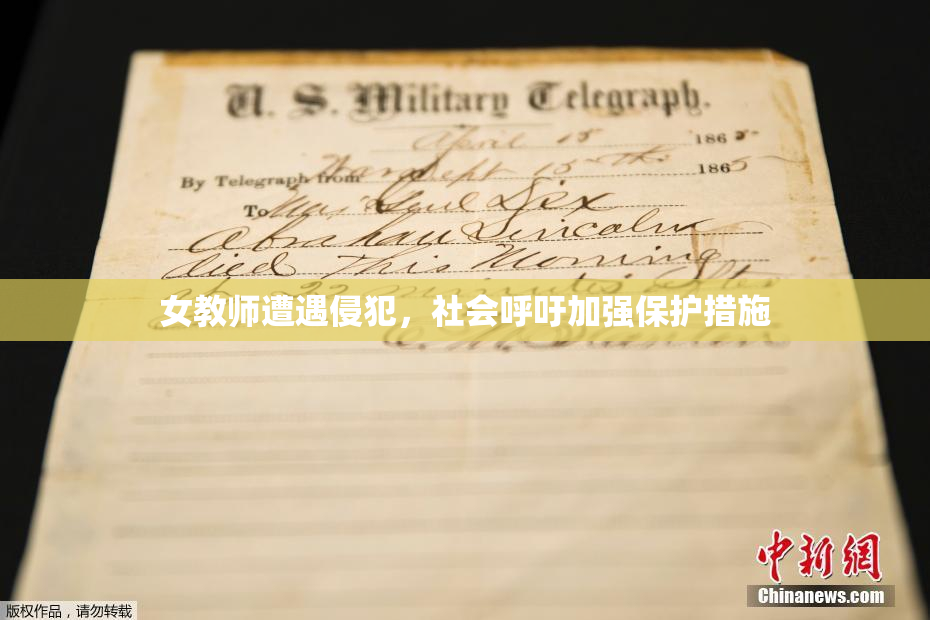 U. S. Military Telegraph.
April 15 1865
By Telegraph from War Dept 15th 1865
To Maj Genl Dix
Abraham Lincoln
died This Morning
at 22 minutes after
女教师遭遇侵犯，社会呼吁加强保护措施
E. M. Stanton
中新网
Chinanews.com
版权作品，请勿转载